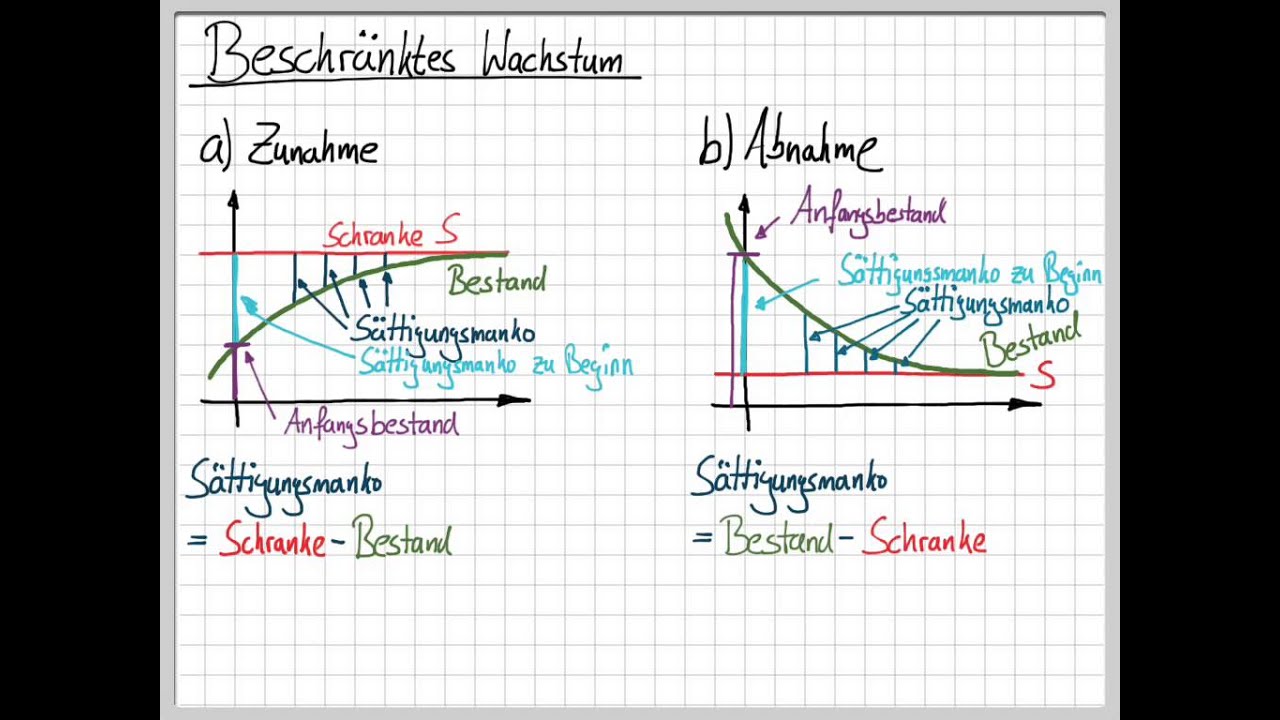 Beschränktes Wachstum
a) Zunahme
Schranke S
Bestand
Sättigungsmanko
Sättigungsmanko zu Beginn
Anfangsbestand
Sättigungsmanko
= Schranke - Bestand
b) Abnahme
Anfangsbestand
Sättigungsmanko zu Beginn
Sättigungsmanko
Bestand
S
Sättigungsmanko
= Bestand - Schranke